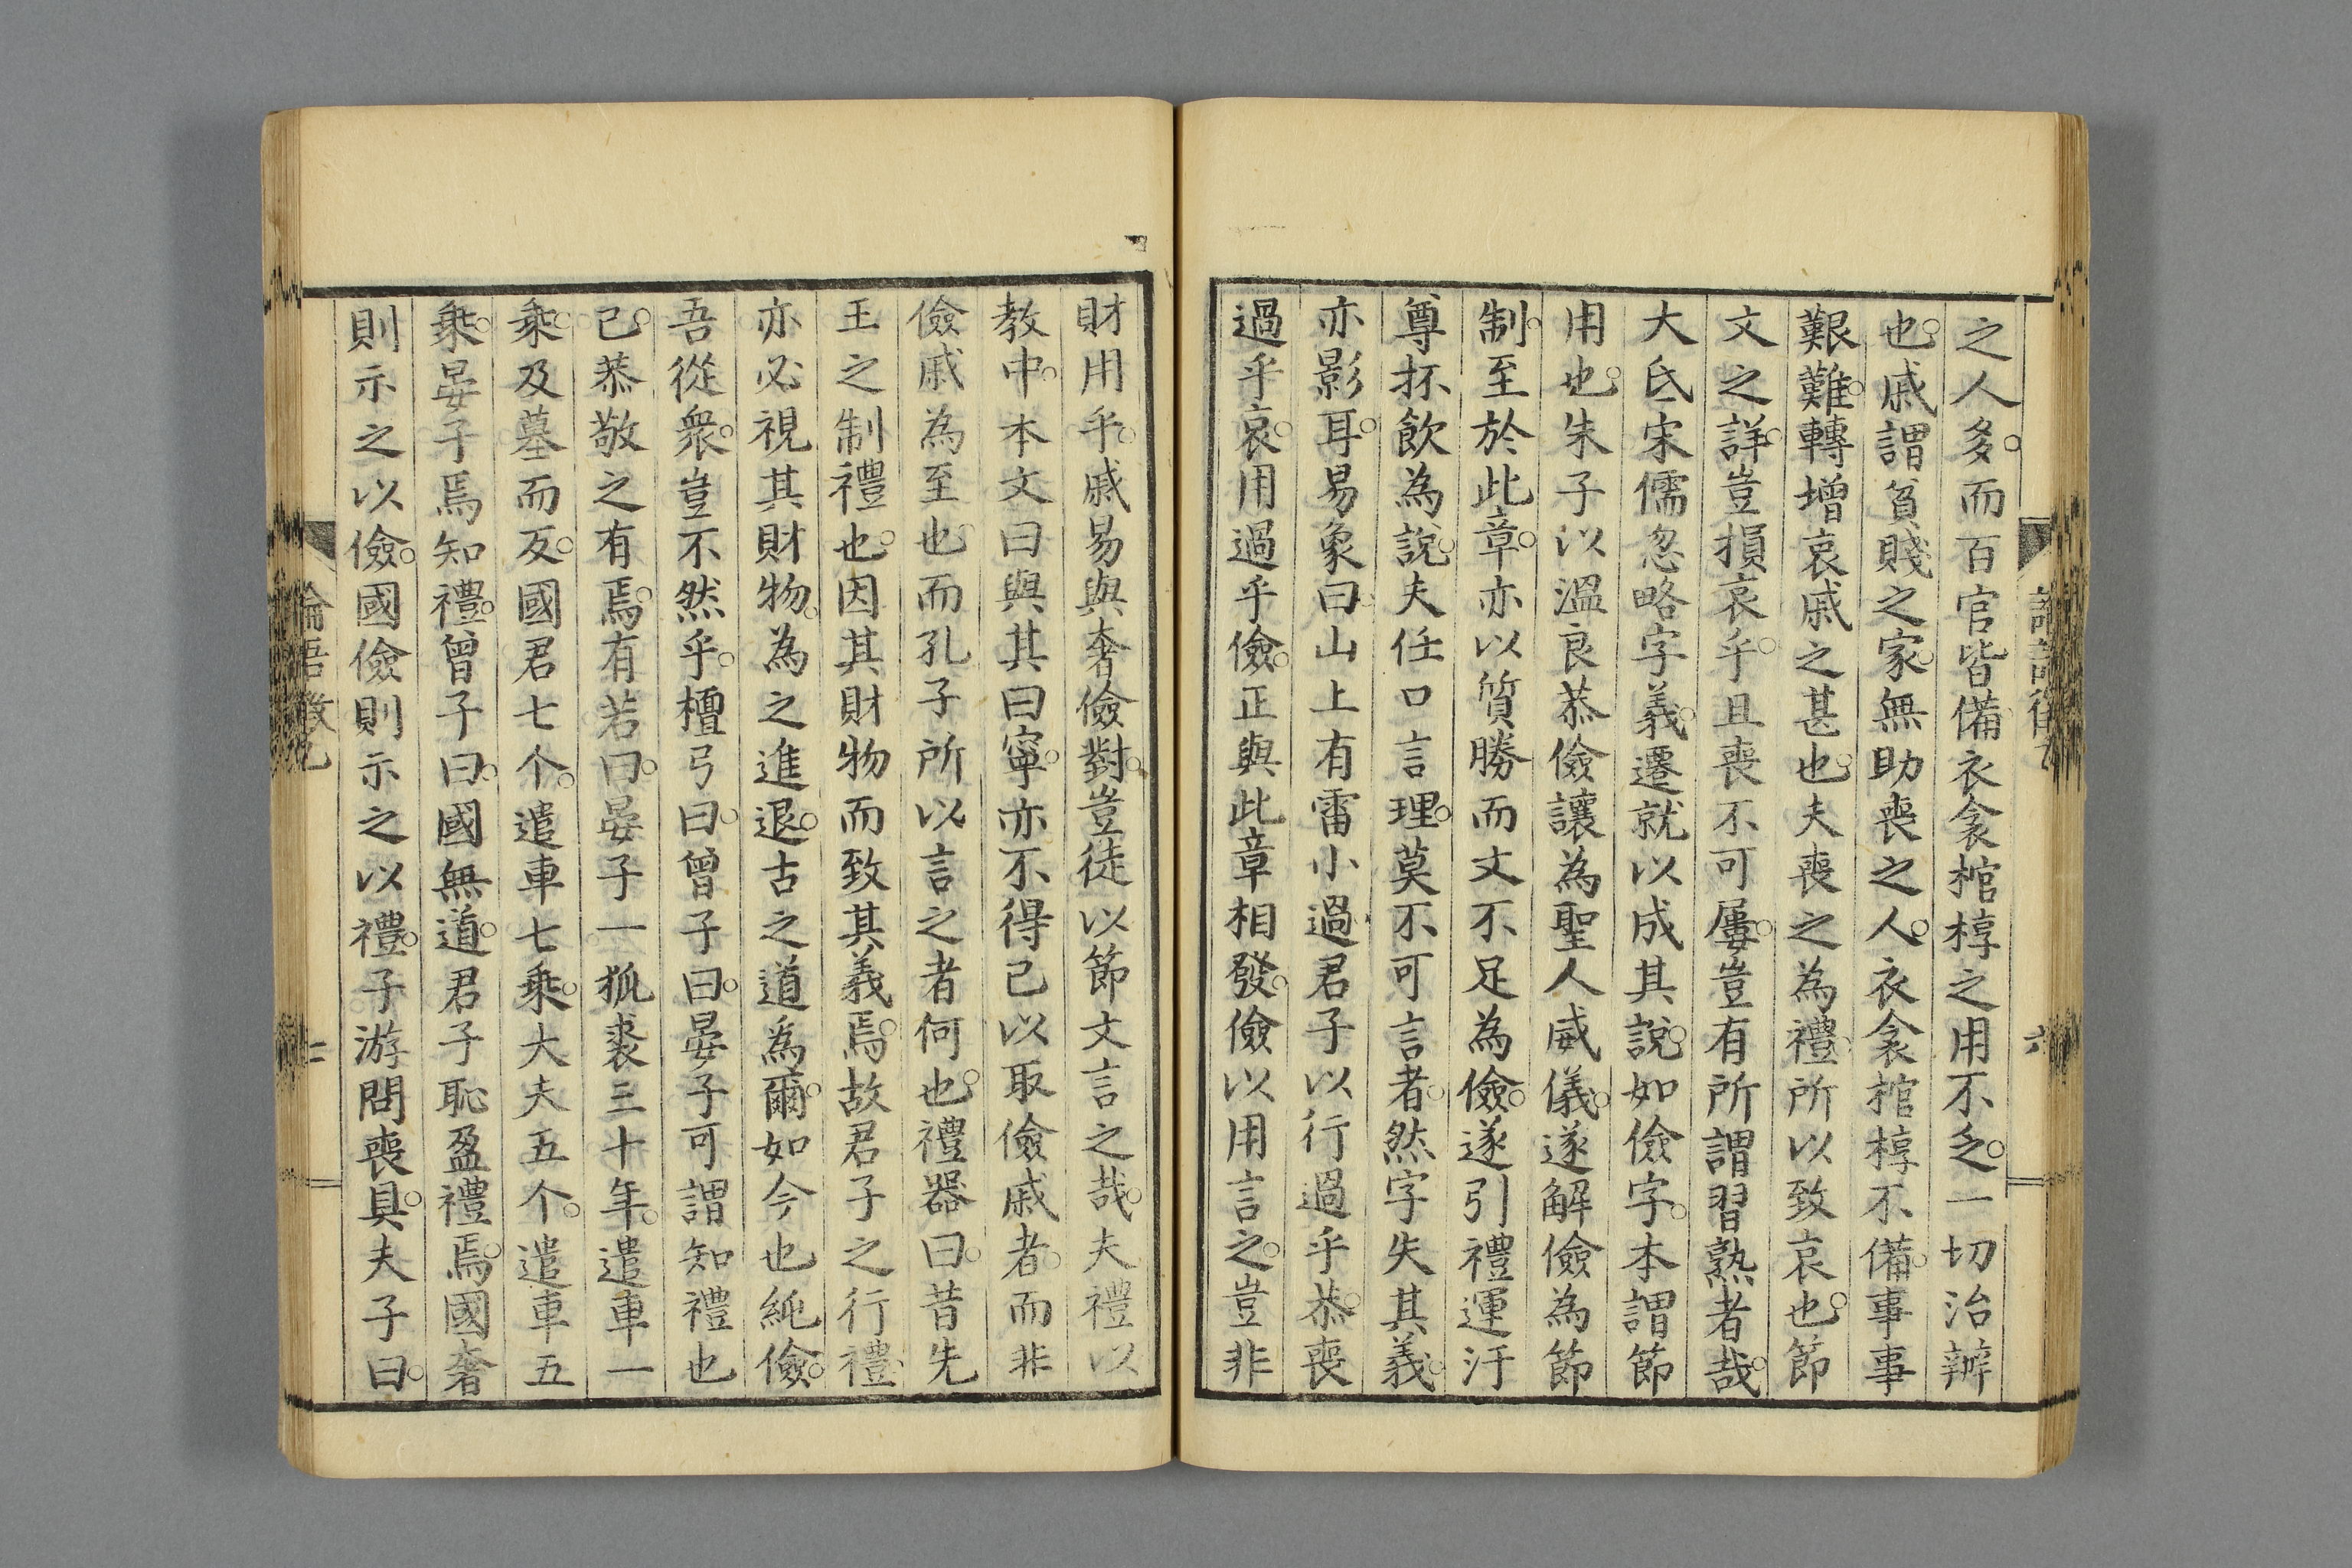 之人多。而百官皆備衣衾棺椁之用不乏。一切治辦
也。戚謂貧賤之家。無助喪之人。衣衾棺椁不備。事事
艱難。轉增哀戚之甚也。夫喪之為禮。所以致哀也。節
文之詳。豈損哀乎。且喪不可屢。豈有所謂習熟者哉。
大氐宋儒忽略字義。遷就以成其說。如儉字。本謂節
用也。朱子以溫良恭儉讓為聖人威儀。遂解儉為節
制。至於此章。亦以質勝而文不足為儉。遂引禮運汙
尊抔飲為說。夫任口言理。莫不可言者。然字失其義。
亦影耳。易象曰。山上有雷小過君子以行過乎恭。喪
過乎哀。用過乎儉。正與此章相發。儉以用言之。豈非
財用乎。戚易與奢儉對。豈徒以節文言之哉。夫禮以
教中。本文曰與其曰寧。亦不得已以取儉戚者。而非
儉戚為至也。而孔子所以言之者何也。禮器曰。昔先
王之制禮也。因其財物而致其義焉。故君子之行禮。
亦必視其財物。為之進退。古之道為爾。如今也純儉。
吾從衆。豈不然乎。檀弓曰。曾子曰。晏子可謂知禮也
已。恭敬之有焉。有若曰。晏子一狐裘三十年。遣車一
乘。及墓而反。國君七个。遣車七乘。大夫五个。遣車五
乘。晏子焉知禮。曾子曰。國無道。君子恥盈禮焉。國奢
則示之以儉。國儉則示之以禮。子游問喪具。夫子曰。
論語徵乙